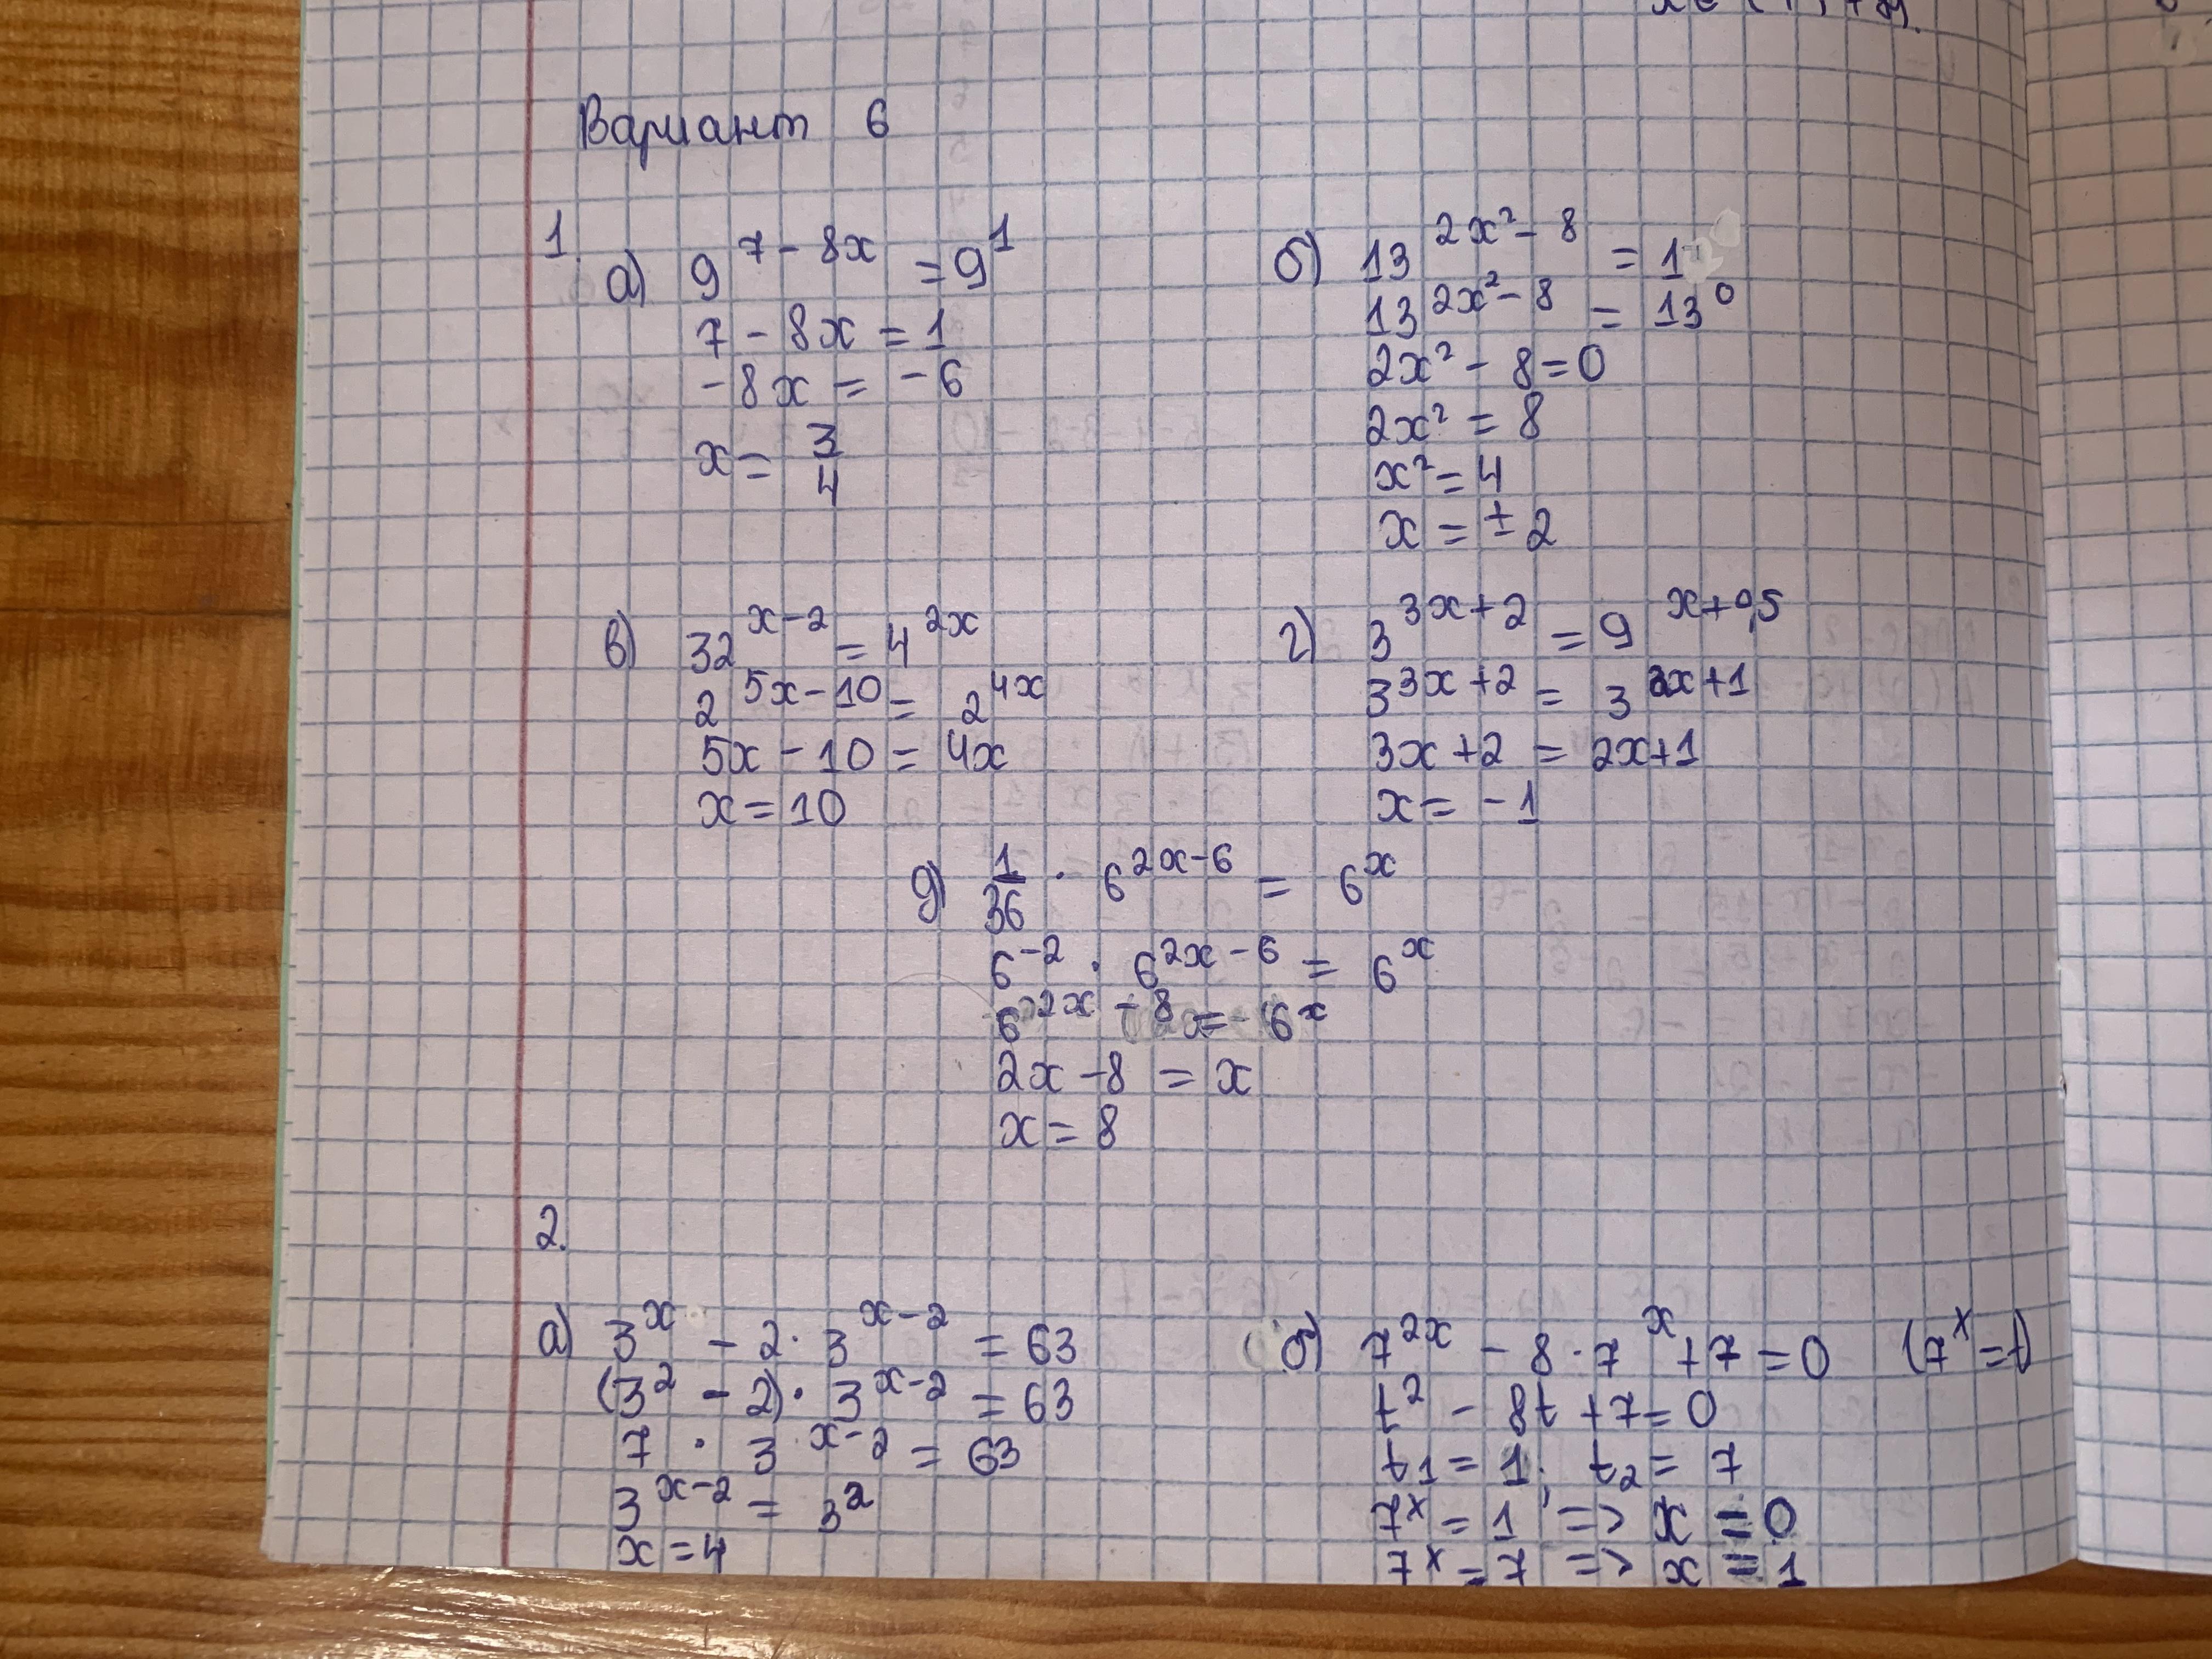 Вариант 6
1. а) 9^{7-8x} = 9^1
7 - 8x = 1
-8x = -6
x = 3/4
б) 13^{2x²-8} = 1
13^{2x²-8} = 13^0
2x² - 8 = 0
2x² = 8
x² = 4
x = ± 2
в) 32^{x-2} = 4^{2x}
2^{5x-10} = 2^{4x}
5x - 10 = 4x
x = 10
г) 3^{3x+2} = 9^{x+0,5}
3^{3x+2} = 3^{2x+1}
3x + 2 = 2x + 1
x = -1
д) 1/36 · 6^{2x-6} = 6^x
6^{-2} · 6^{2x-6} = 6^x
6^{2x-8} = 6^x
2x - 8 = x
x = 8
2.
а) 3^x - 2 · 3^{x-2} = 63
(3² - 2) · 3^{x-2} = 63
7 · 3^{x-2} = 63
3^{x-2} = 3²
x = 4
б) 7^{2x} - 8 · 7^x + 7 = 0 (7^x = t)
t² - 8t + 7 = 0
t₁ = 1; t₂ = 7
7^x = 1 => x = 0
7^x = 7 => x = 1